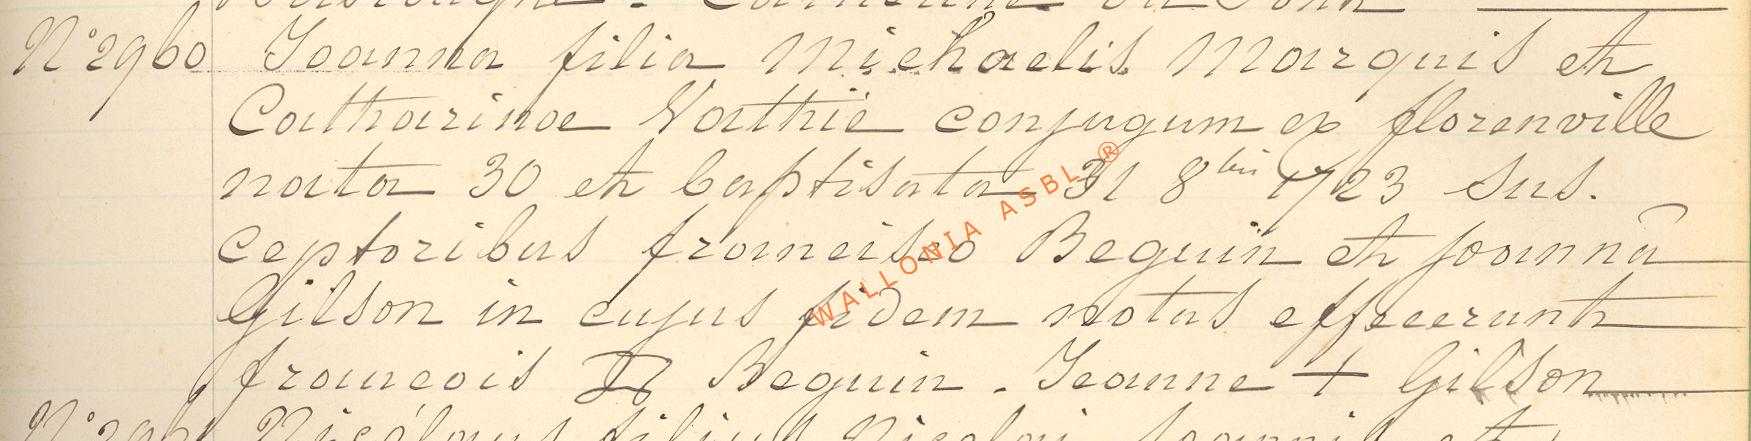 N° 2960 Joanna filia Michaelis Marquis et
Catharinae Vathie conjugum ex florenville
nata 30 et baptisata 31 8bris 1723 sus.
ceptoribus francisco Beguin et joanna
Gilson in cujus fidem notas effecerunt
francois Beguin. Jeanne + Gilson
WALLONIA ASBL ®